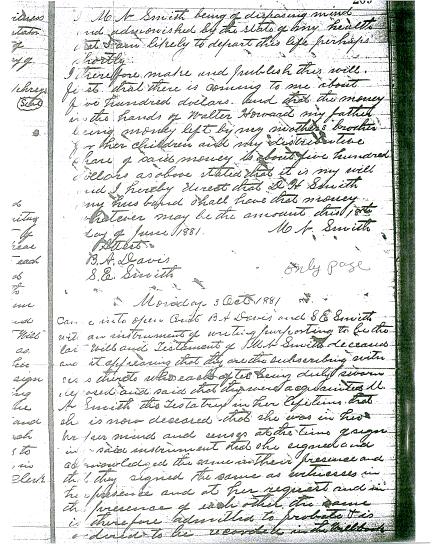 I M N Smith being of disposing mind
and admonished by the state of my health
that I am likely to depart this life perhaps
shortly
I therefore make and publish this will.
First. that there is coming to me about
five hundred dollars. and that the money
in the hands of Walter Howard my father
being money left by my mothers brother
for her children and my distributive
share of said money is about five hundred
dollars as above stated that it is my will
and I hereby direct that D H Smith
my husband shall have that money
whatever may be the amount this 18th
day of June 1881. M N Smith
Attest
B. A. Davis
S. E. Smith
only page
Monday 3 Oct 1881
Came into open Court B A Davis and S E Smith
with an instrument of writing purporting to be the
last Will and Testament of M N Smith deceased
and it appearing that they are the subscribing witn
esses thereto who each after being duly sworn
and said that they were acquainted
Smith the testatrix in her lifetime that
she is now deceased that she was in her
proper mind and senses at the time of sign
ing said instrument that she signed and
acknowledged the same in their presence and
that they signed the same as witnesses in
her presence and at her request and in
the presence of each other, the same
is therefore admitted to probate & is
ordered to be recorded in the Will book